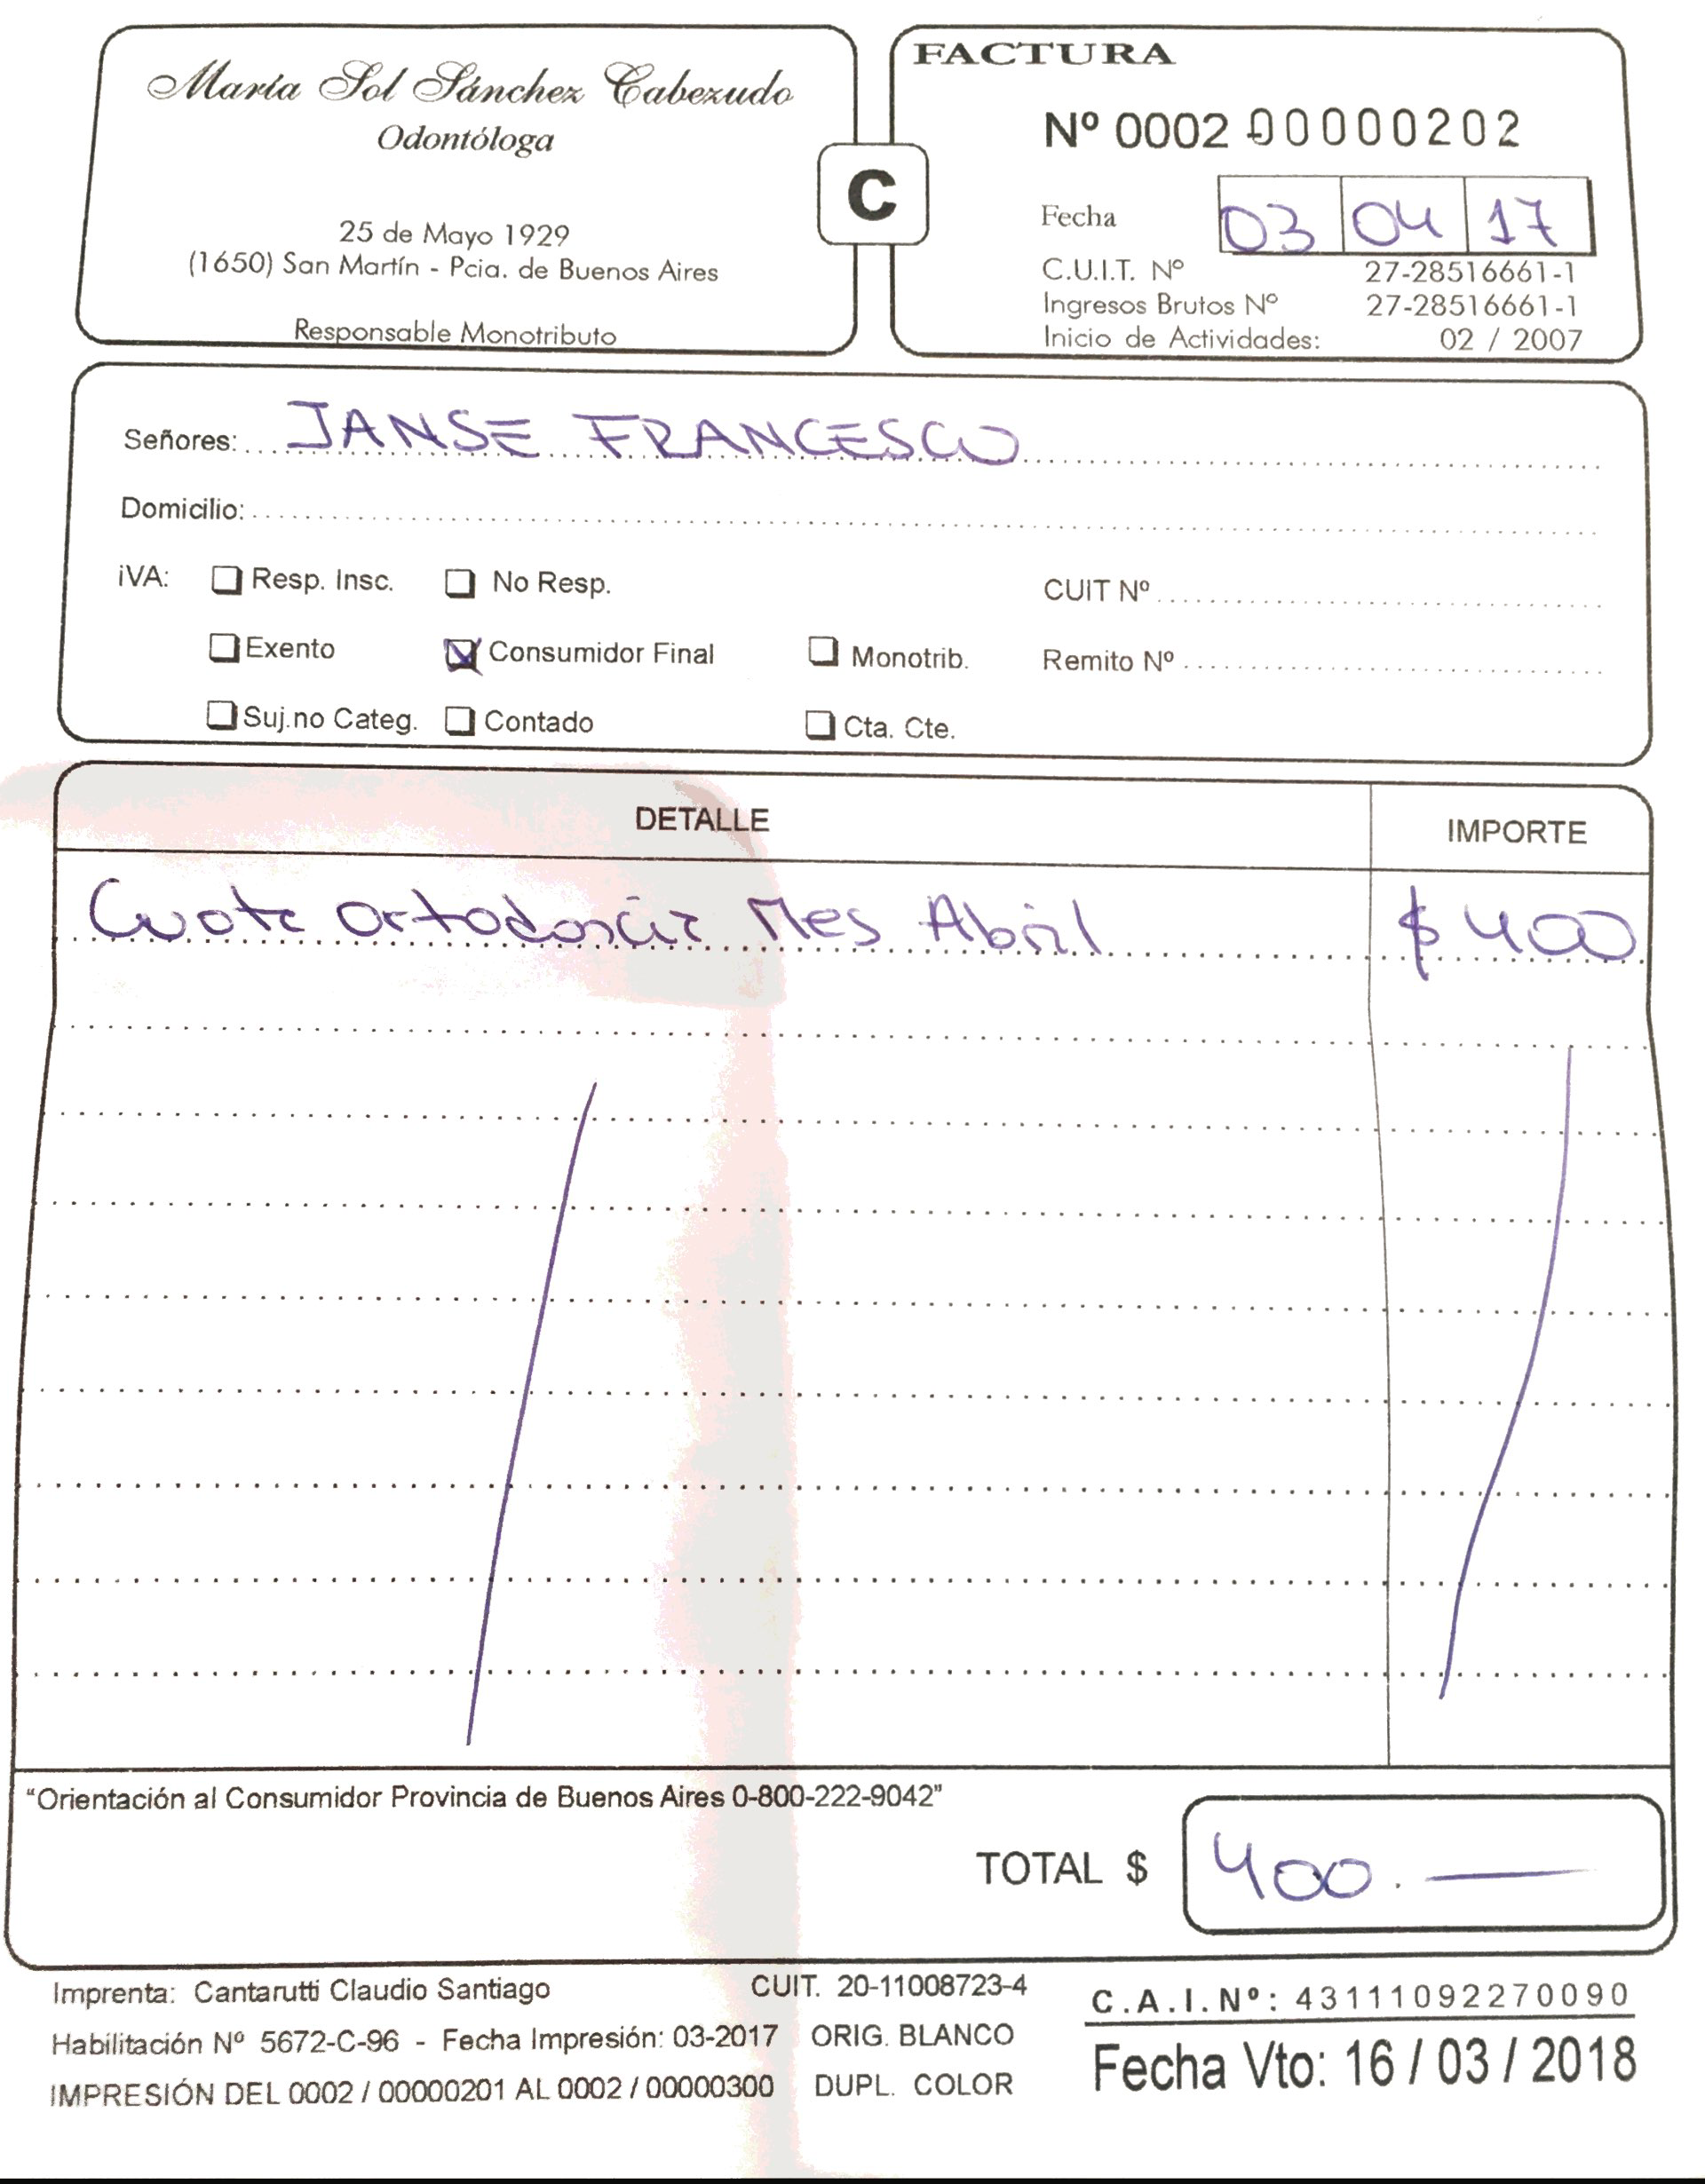 María Sol Sánchez Cabezudo
Odontóloga
25 de Mayo 1929
(1650) San Martín - Pcia. de Buenos Aires
Responsable Monotributo
C
FACTURA
Nº 0002 00000202
Fecha 03 04 17
C.U.I.T. Nº 27-28516661-1
Ingresos Brutos Nº 27-28516661-1
Inicio de Actividades: 02 / 2007
Señores: JANSE FRANCESCO
Domicilio:
iVA: Resp. Insc. No Resp. CUIT Nº
Exento Consumidor Final Monotrib. Remito Nº
Suj.no Categ. Contado Cta. Cte.
DETALLE IMPORTE
Cuota Ortodoncia Mes Abril $ 400
"Orientación al Consumidor Provincia de Buenos Aires 0-800-222-9042"
TOTAL $ 400.—
Imprenta: Cantarutti Claudio Santiago CUIT. 20-11008723-4
Habilitación Nº 5672-C-96 - Fecha Impresión: 03-2017 ORIG. BLANCO
IMPRESIÓN DEL 0002 / 00000201 AL 0002 / 00000300 DUPL. COLOR
C.A.I.Nº: 43111092270090
Fecha Vto: 16 / 03 / 2018